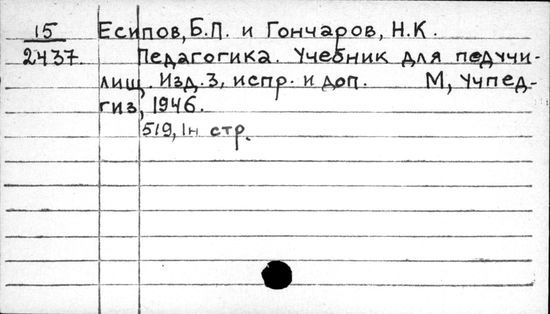 15 Есипов, Б.П. и Гончаров, Н.К.
2437 Педагогика. Учебник для педучи-
лищ. Изд. 3, испр. и доп. М, Учпед-
гиз, 1946.
519, 1н стр.